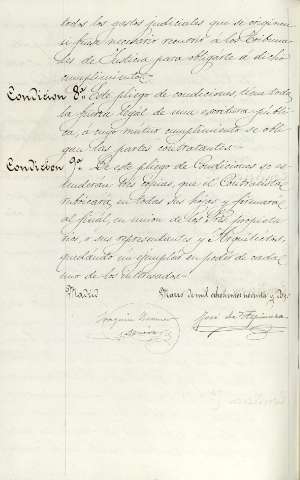 todos los gastos judiciales que se originen
si fuese necesario recurrir a los Tribuna-
les de Justicia para obligarle a dicho
cumplimiento.
Condicion 8ª. Este pliego de condiciones, tiene toda
la fuerza legal de una escritura públi-
ca, a cuyo mutuo cumplimiento se obli-
gan las partes contratantes.
Condicion 9ª. De este pliego de Condiciones se es-
tenderan tres copias, que el Contratista
rubricará en todas sus hojas y firmará
al final, en union de los Sres. propieta-
rios, ó sus representantes y Arquitectos,
quedando un ejemplar en poder de cada
uno de los interesados.
Madrid Marzo de mil ochocientos noventa y
Joaquin
José de